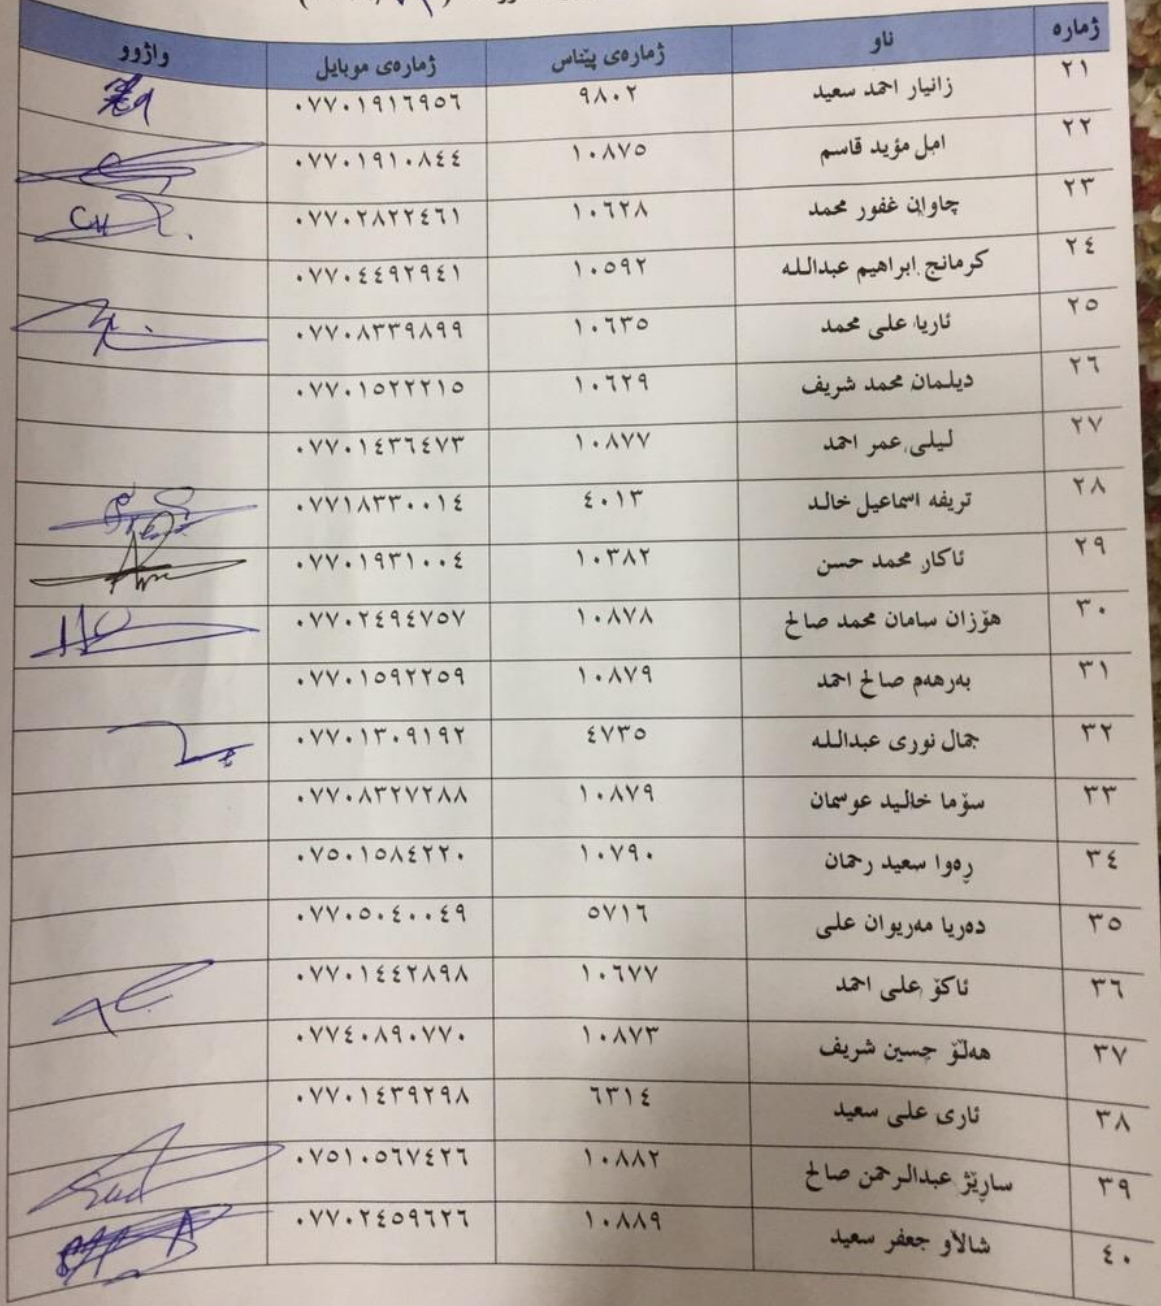 ژمارە ناو ژمارەی پێناس ژمارەی موبایل واژوو
٢١ زانیار احمد سعید ٩٨٠٢ ٠٧٧٠١٩١٦٩٥٦
٢٢ امل مؤید قاسم ١٠٨٧٥ ٠٧٧٠١٩١٠٨٤٤
٢٣ چاوان غفور محمد ١٠٦٢٨ ٠٧٧٠٢٨٢٢٤٦١
٢٤ کرمانج ابراهیم عبداللە ١٠٥٩٢ ٠٧٧٠٤٤٩٢٩٤١
٢٥ ئاریا علی محمد ١٠٦٣٥ ٠٧٧٠٨٣٣٩٨٩٩
٢٦ دیلمان محمد شریف ١٠٦٢٩ ٠٧٧٠١٥٢٢٢١٥
٢٧ لیلی عمر احمد ١٠٨٧٧ ٠٧٧٠١٤٣٦٤٧٣
٢٨ تریفە اسماعیل خالد ٤٠١٣ ٠٧٧١٨٣٣٠٠١٤
٢٩ ئاکار محمد حسن ١٠٣٨٢ ٠٧٧٠١٩٣١٠٠٤
٣٠ هۆزان سامان محمد صالح ١٠٨٧٨ ٠٧٧٠٢٤٩٤٧٥٧
٣١ بەرهەم صالح احمد ١٠٨٧٩ ٠٧٧٠١٥٩٢٢٥٩
٣٢ جمال نوری عبداللە ٤٧٣٥ ٠٧٧٠١٣٠٩١٩٢
٣٣ سۆما خالید عوسمان ١٠٨٧٩ ٠٧٧٠٨٣٢٧٢٨٨
٣٤ ڕەوا سعید رحمان ١٠٧٩٠ ٠٧٥٠١٥٨٤٢٢٠
٣٥ دەریا مەریوان علی ٥٧١٦ ٠٧٧٠٥٠٤٠٠٤٩
٣٦ ئاکۆ علی احمد ١٠٦٧٧ ٠٧٧٠١٤٤٢٨٩٨
٣٧ هەڵۆ حسین شریف ١٠٨٧٣ ٠٧٧٤٠٨٩٠٧٧٠
٣٨ ئاری علی سعید ٦٣١٤ ٠٧٧٠١٤٣٩٢٩٨
٣٩ ساڕێژ عبدالرحمن صالح ١٠٨٨٢ ٠٧٥١٠٥٦٧٤٢٦
٤٠ شالاو جعفر سعید ١٠٨٨٩ ٠٧٧٠٢٤٥٩٦٢٦